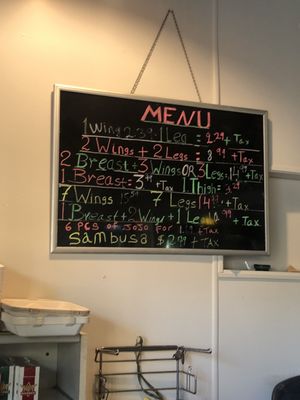 MENU
1 Wing 2.39. 1 Leg = 2.29 + Tax
2 Wings + 2 Legs = 8.99 + Tax
2 Breast + 3 Wings OR 3 Legs = 14 + Tax
1 Breast = 3 + Tax 1 Thigh = 3.29
7 Wings 7 Legs 14 + Tax
1 Breast + 2 Wing + 1 Leg 99 + Tax
6 PCS OF JOJO FOR + TAX
Sambusa $ 2.79 + TAX